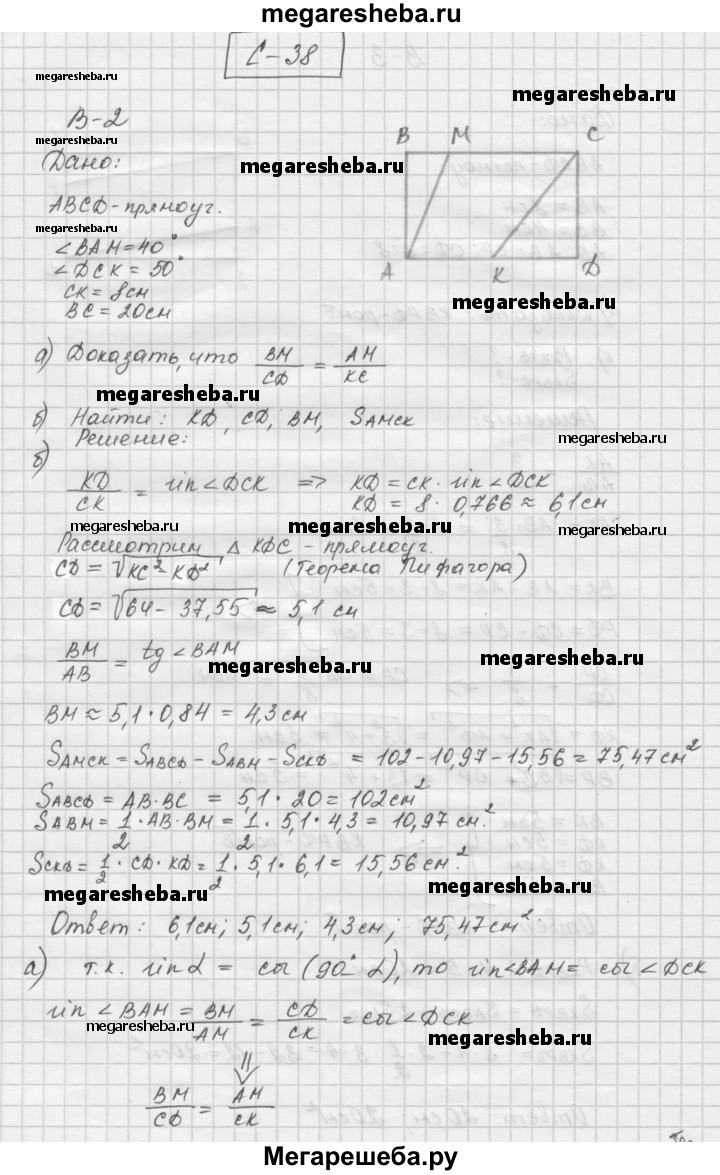 megaresheba.ru
С-38
megaresheba.ru
megaresheba.ru
В-2
megaresheba.ru
Дано:
megaresheba.ru
B M C
ABCD-прямоуг.
megaresheba.ru
∠BAM=40°
∠DCK = 50°
A K D
CK = 8см
BC = 20см
megaresheba.ru
а) Доказать, что BM/CD = AM/KC
megaresheba.ru
б) Найти: KD, CD, BM, SAMCK
Решение:
megaresheba.ru
б)
KD/CK = sin∠DCK => KD = CK · sin∠DCK
KD = 8 · 0,766 ≈ 6,1 см
megaresheba.ru
megaresheba.ru
megaresheba.ru
Рассмотрим △ KDC - прямоуг.
CD = √KC²-KD² (Теорема Пифагора)
CD = √64 - 37,55 ≈ 5,1 см
BM/AB = tg ∠BAM
megaresheba.ru
megaresheba.ru
BM ≈ 5,1·0,84 = 4,3 см
SAMCK = SABCD - SABM - SCKD = 102-10,97-15,56 = 75,47 см²
SABCD = AB·BC = 5,1 · 20 = 102 см²
SABM = 1/2 · AB·BM = 1/2 · 5,1·4,3 = 10,97 см.²
SCKD = 1/2 · CD·KD = 1/2 · 5,1·6,1 = 15,56 см.²
megaresheba.ru
megaresheba.ru
Ответ: 6,1см; 5,1см; 4,3см; 75,47см²
megaresheba.ru
а) т.к. sin α = cos (90° α), то sin∠BAM = cos ∠DCK
sin ∠BAM = BM/AM = CD/CK = cos∠DCK
megaresheba.ru
megaresheba.ru
⇓
BM/CD = AM/CK
Мегарешеба.ру